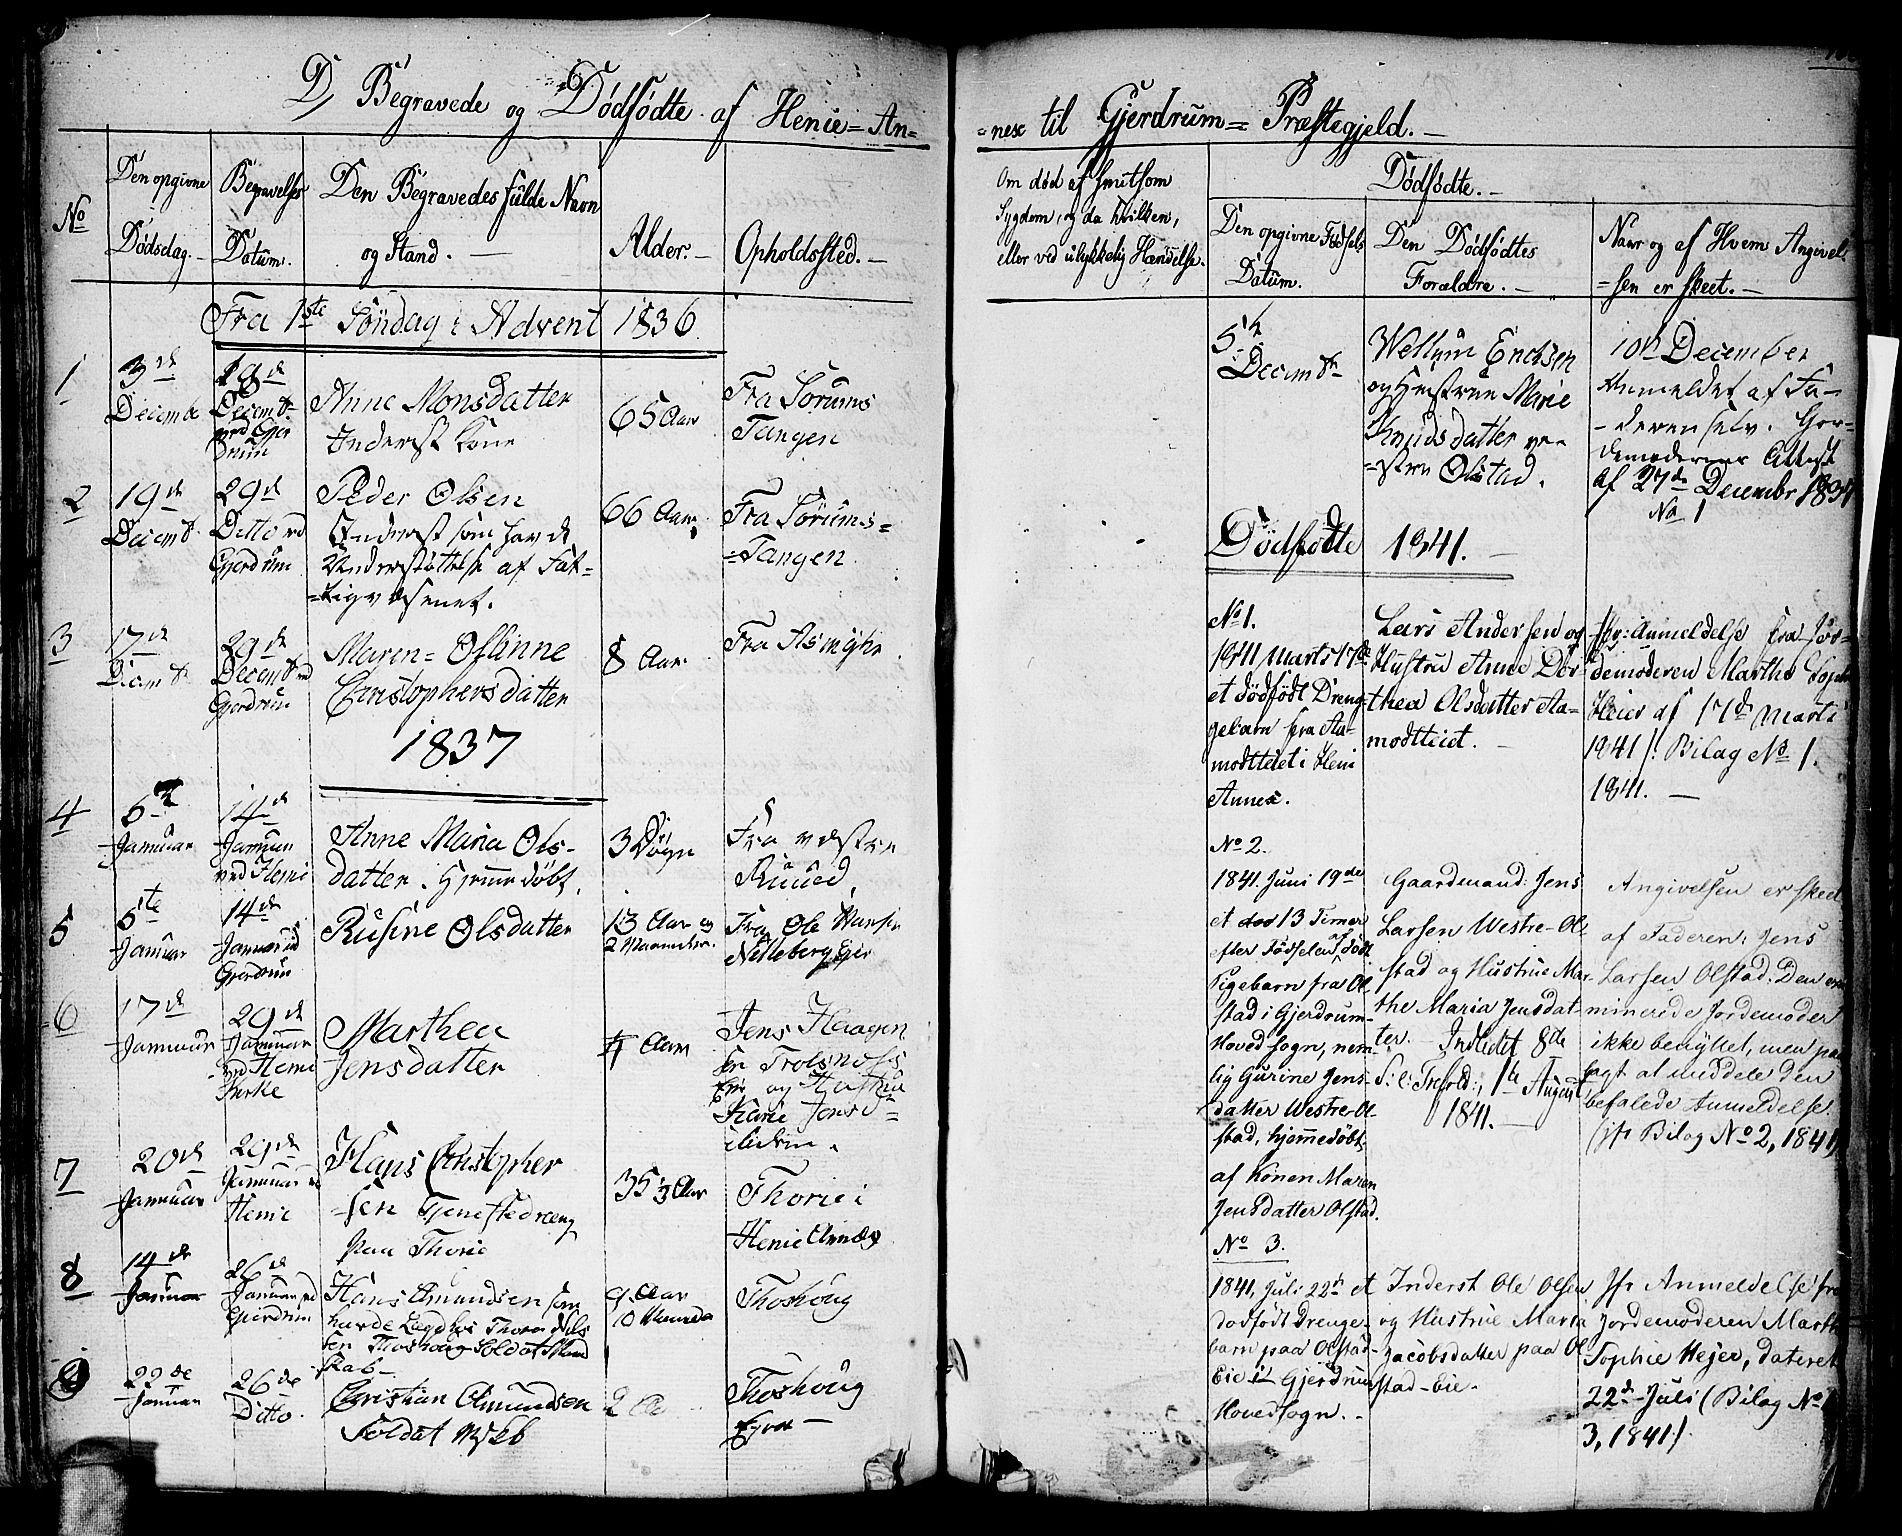 D, Begravede og Dødfødte af Henie=An=
No
Den opgivne
Dødsdag.
Begravelses
Datum.
Den Begravedes fulde Navn
og Stand.
Alder.
Opholdssted.
Fra 1ste Søndag i Advent 1836
1
3de
Decembe
Anne Monsdatter
Inderst Kone
65 Aar
Fra Sørums
Tangen
2
19de
Decembr
29de
Ditto ved
Gjerdrum
Peder Olsen
Inderst som havde
Understøttelse af Fat-
=tigvæsenet.
66 Aar
Fra Sørums=
=Tangen
3
17de
29de
Decembr ved
Gjerdrum
Maren=
Christophersdatter
8 Aar
Fra
1837
4
Januar
14de
Januar
ved Heni
Anne Maria Ols-
datter. Hjemmedøbt.
3 Døgn
Fra vestre
5
5te
Januar
14de
Januar ved
Gjerdrum
Rusine Olsdatter
13 Aar og
2 Maaneder.
Fra Ole Hansen
Nelleberg Eier
6
17de
Januar
29de
Januar
ved Heni
Kirke
Marthea
Jensdatter
Aar
Jens Haagen
sen
og Hustrue
7
20de
Januar
29de
Januar ved
Heni
Hans Christopher
=sen Tjenestedreng
paa Thorie
35 1/3 Aar
Thorie i
Henie Annæx
8
14de
Januar
26de
Januar ved
Gjerdrum
Hans Amundsen som
havde Lægd hos Thorer Niels
sen Thoshoug Soldat Mand
skab
9 Aar
10 Maaneder
Thoshoug
22de
Januar
26de
Ditto.
Christian Amundsen
Soldat
2
Thoshoug
=nex til Gjerdrum= Præstegjeld.
Om død af smitsom
Sygdom, og da hvilken,
eller ved ulykkelig Hændelse.
Dødfødte.
Den opgivne Fødsels
Datum.
Den Dødfødtes
Forældre.
Navn og af Hvem Angivel-
=sen er skeet.
5te
Decembr
Erichsen
og Hustrue Marie
Knudsdatter ve-
=stre Olstad.
10de December
Anmeldet af Fa-
-deren selv. Gjor-
demoderens Attest
af 27de Decembr
No 1
Dødfødte 1841.
No 1.
1841 Marts 17de
et dødfødt Dreng-
gebarn fra Aa-
modtteiet i Heni
Annex.
Lars Andersen og
Hustru Anne Dor
thea Olsdatter Aa-
modtteiet.
skr: Anmeldelse fra Jor-
demoderen Marthe Sophie
Heier af 17de Marts
1841 /: Bilag No 1.
1841.
No 2.
1841. Juni 19de
et 13 Timer
efter Fødselen dødt
Pigebarn fra Ol-
stad i Gjerdrum-
Hoved sogn, nem-
lig Gurine Jens
datter Westre-Ol
stad, hjemmedøbt,
af Konen Maren
Jensdatter Olstad.
Gaardmand: Jens
Larsen Westre-Ol
stad og Hustrue Mar-
the Maria Jensdat-
ter. Indledet 8de
S: e: Trefold:, 1te August
1841.
Angivelsen er skeet
af Faderen: Jens
Larsen Olstad. Den exa
minerede Jordemoder
ikke benyttet, men paa
lagt at meddele den
befalede Anmeldelse.
(jfr Bilag No 2, 1841)
No 3.
1841, Juli 22de et
dødfødt Drenge-
barn paa Olstad-
Eie i Gjerdrum
Hovedsogn.
Inderst Ole Olsen
og Hustrue Maria
Jacobsdatter paa Ol
stad-Eie.
Jfr Anmeldelse fra
Jordemoderen Marth
Sophie Hejer, dateret
22de Juli (Bilag No
3, 1841)